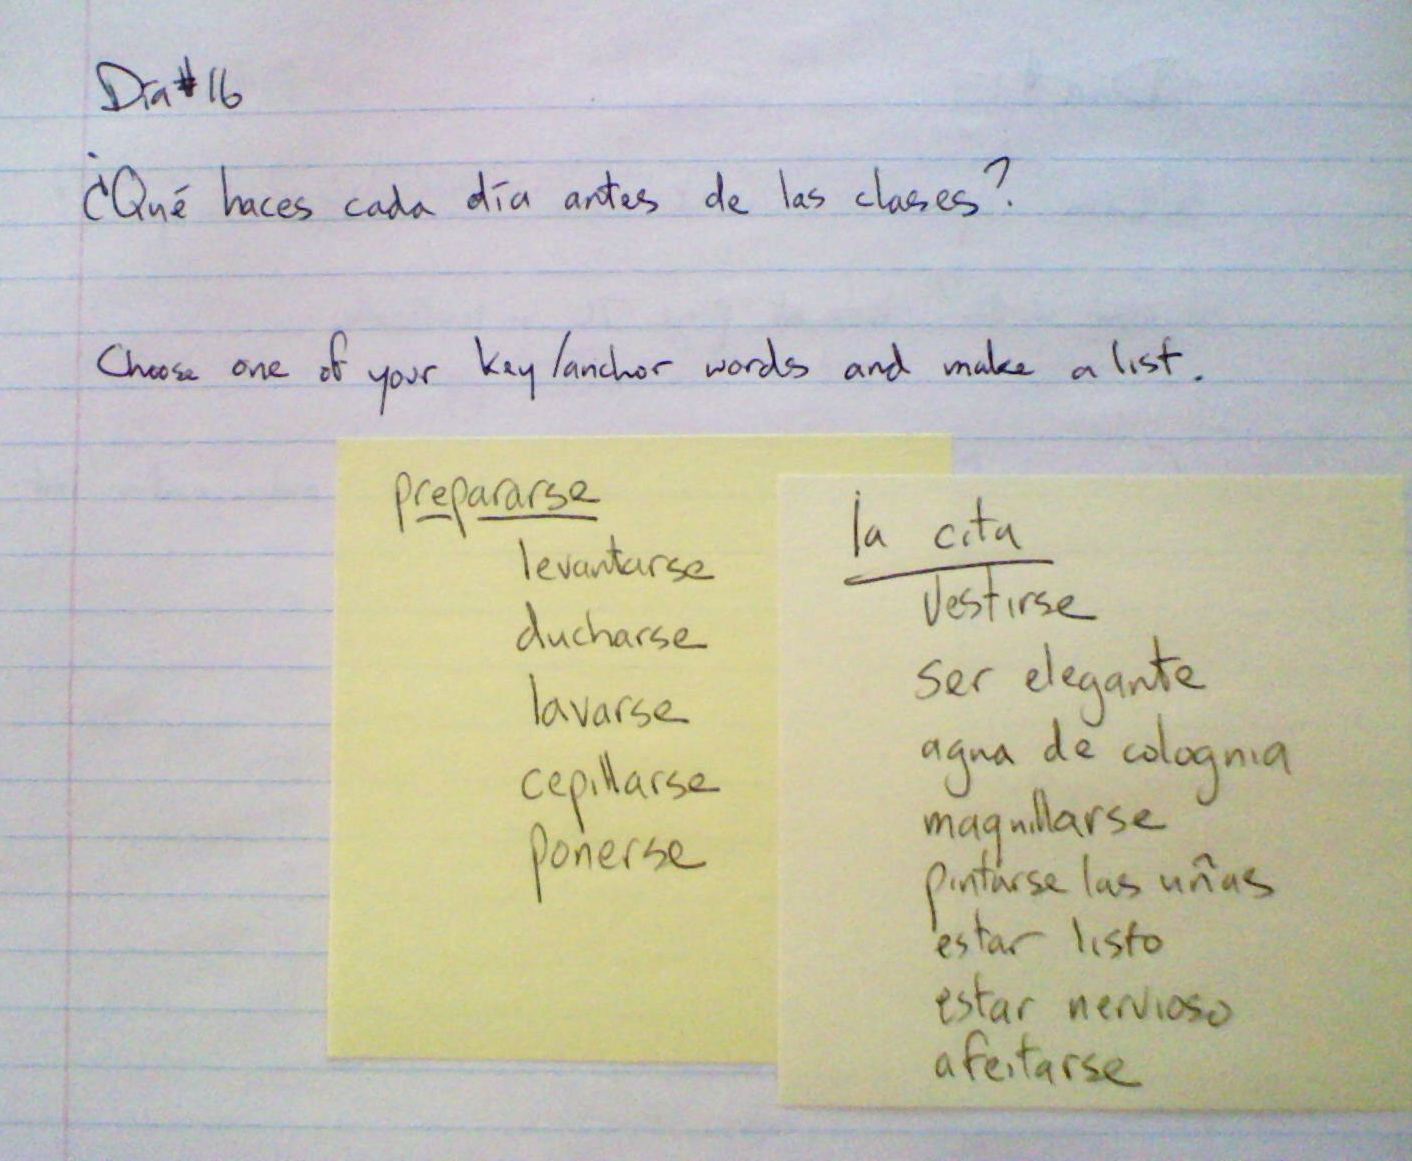 Día #16
¿Qué haces cada día antes de las clases?
Choose one of your key/anchor words and make a list.
prepararse
levantarse
ducharse
lavarse
cepillarse
ponerse
la cita
vestirse
ser elegante
agua de colognia
maquillarse
pintarse las uñas
estar listo
estar nervioso
afeitarse